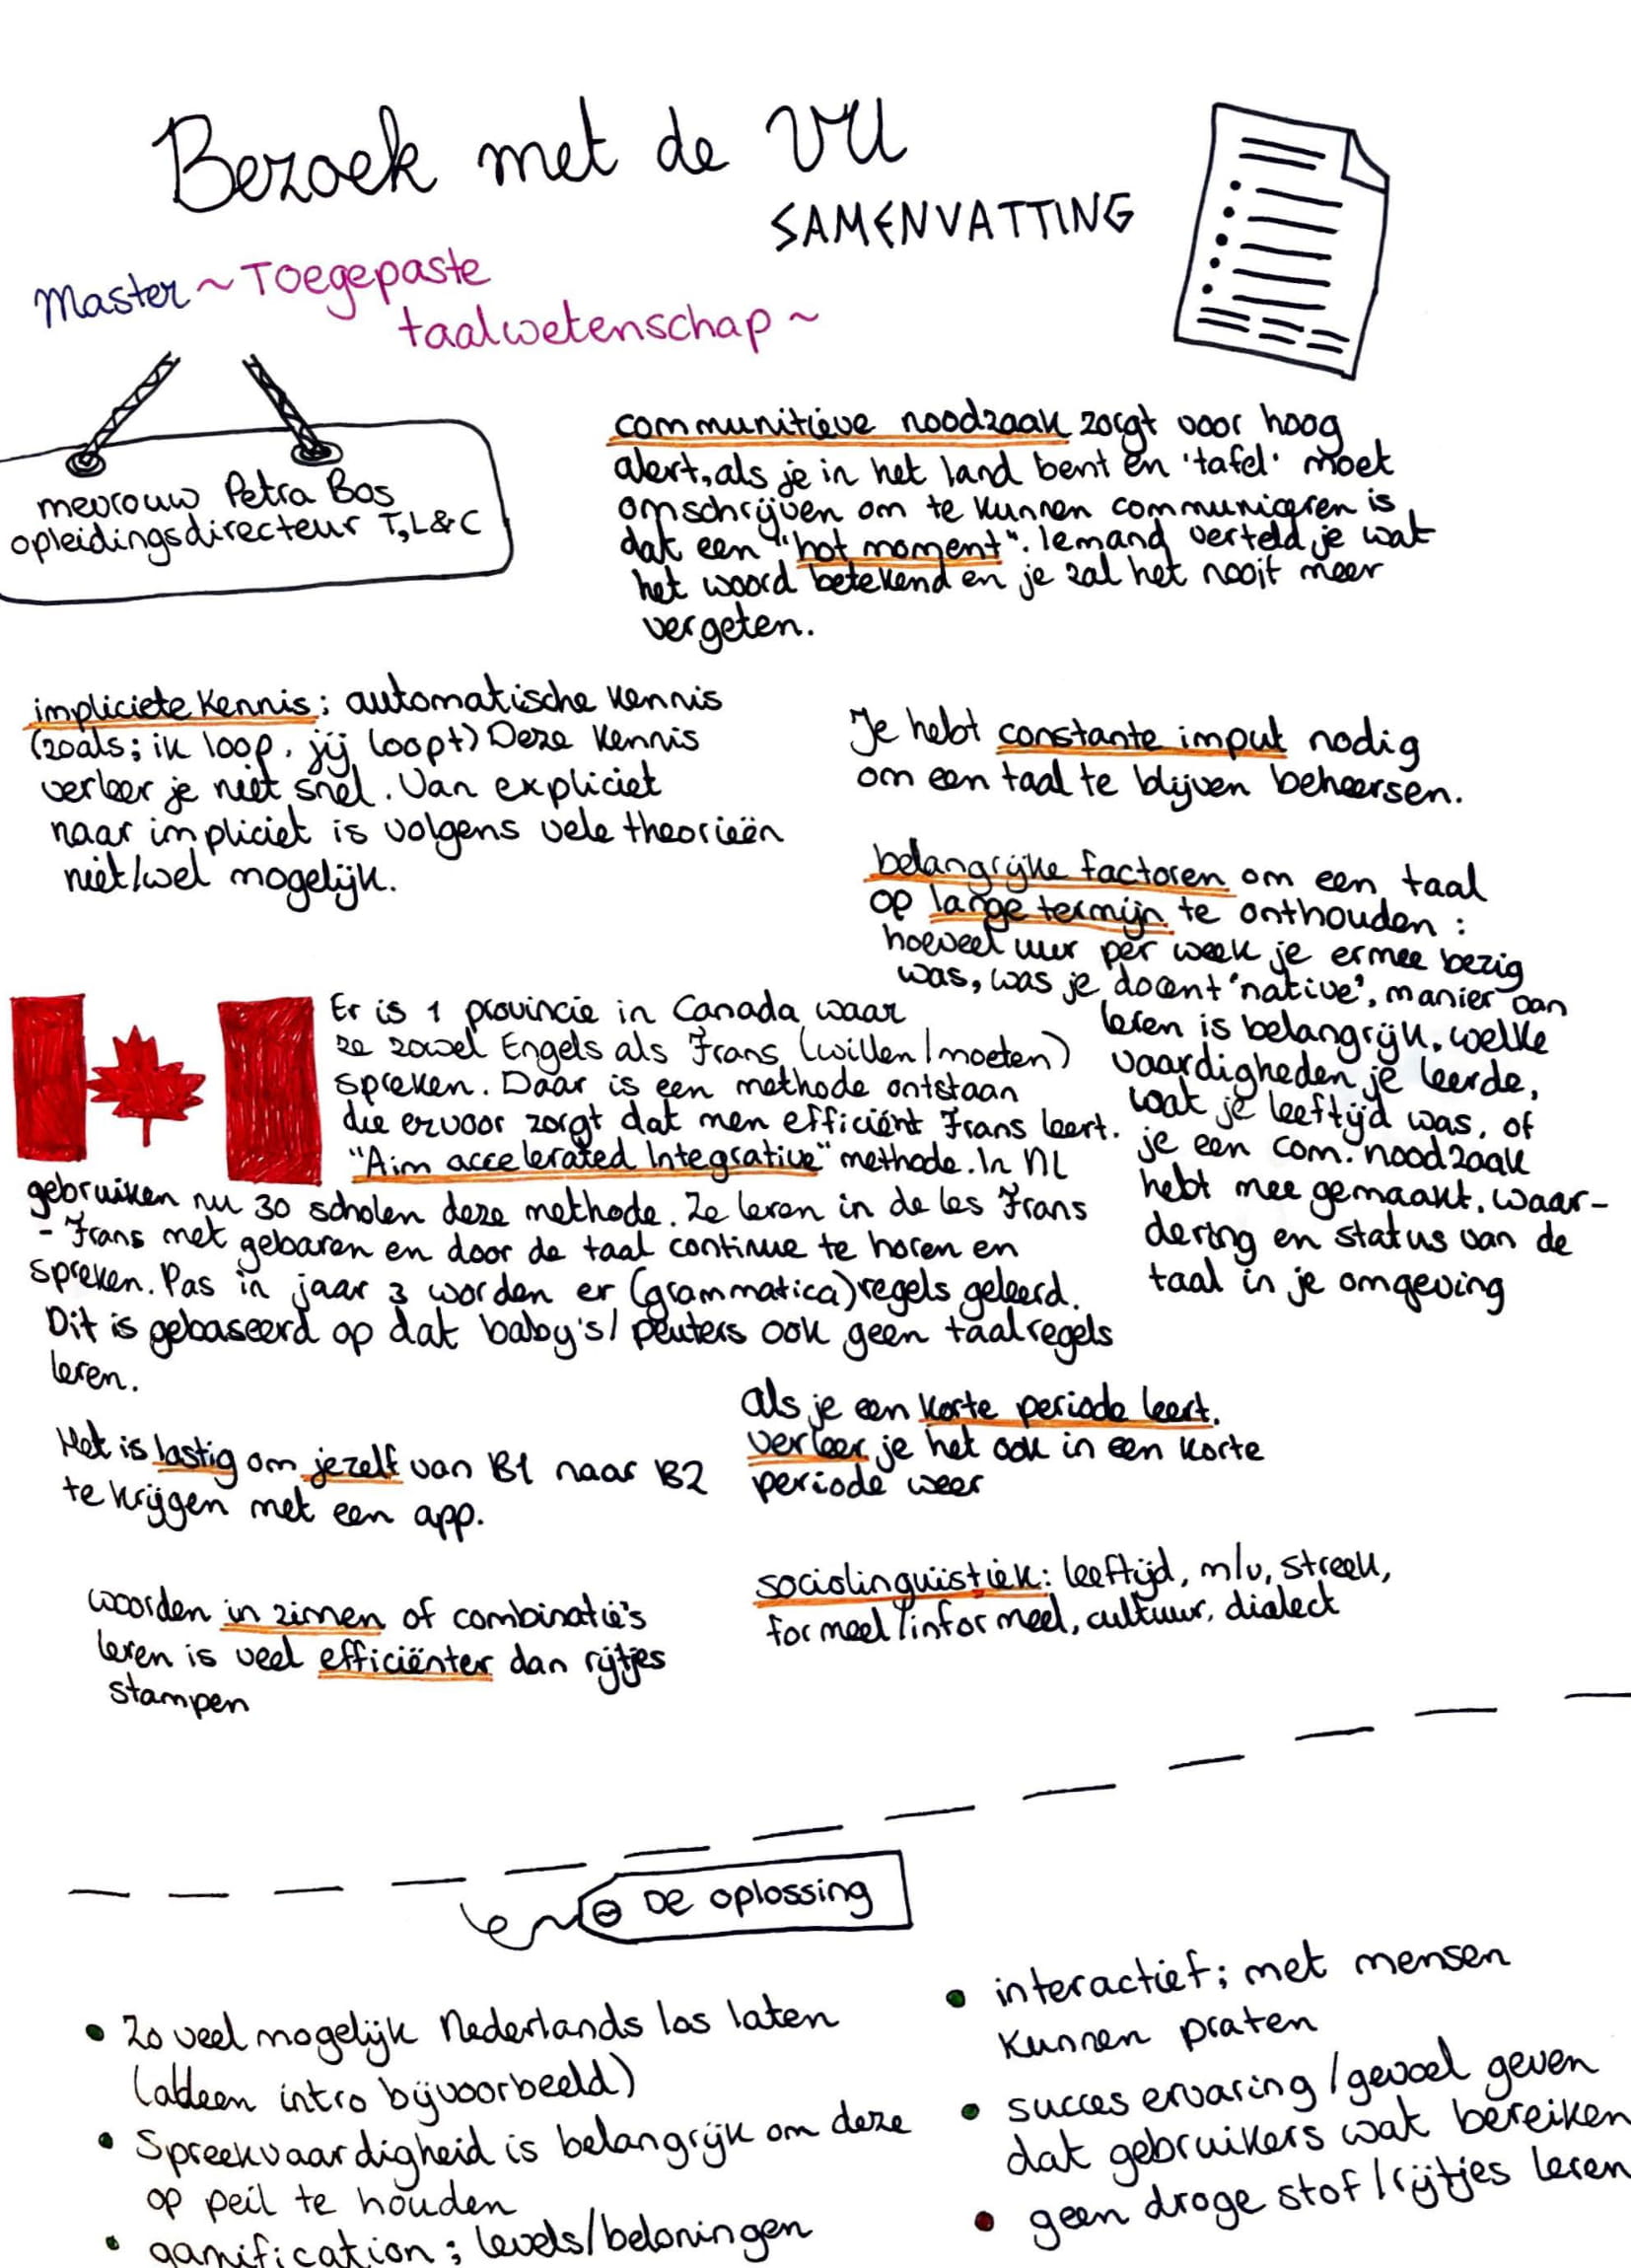 Bezoek met de VU
SAMENVATTING
Master ~ Toegepaste
taalwetenschap ~
mevrouw Petra Bos
opleidingsdirecteur T,L&C
communitieve noodzaak zorgt voor hoog
alert, als je in het land bent en 'tafel' moet
omschrijven om te kunnen communiceren is
dat een "hot moment". Iemand verteld je wat
het woord betekend en je zal het nooit meer
vergeten.
impliciete kennis; automatische kennis
(zoals; ik loop, jij loopt) Deze kennis
verleer je niet snel. Van expliciet
naar impliciet is volgens vele theorieën
niet/wel mogelijk.
Je hebt constante imput nodig
om een taal te blijven beheersen.
belangrijke factoren om een taal
op lange termijn te onthouden:
hoeveel uur per week je ermee bezig
was, was je docent 'native', manier van
leren is belangrijk, welke
vaardigheden je leerde,
wat je leeftijd was, of
je een com. noodzaak
hebt mee gemaakt, waar-
dering en status van de
taal in je omgeving
Er is 1 provincie in Canada waar
ze zowel Engels als Frans (willen/moeten)
spreken. Daar is een methode ontstaan
die ervoor zorgt dat men efficiënt Frans leert.
"Aim accelerated Integrative" methode. In NL
gebruiken nu 30 scholen deze methode. Ze leren in de les Frans
- Frans met gebaren en door de taal continue te horen en
spreken. Pas in jaar 3 worden er (grammatica)regels geleerd.
Dit is gebaseerd op dat baby's/peuters ook geen taalregels
leren.
als je een korte periode leert,
verleer je het ook in een korte
periode weer
Het is lastig om jezelf van B1 naar B2
te krijgen met een app.
sociolinguistiek: leeftijd, m/v, streek,
formeel/informeel, cultuur, dialect
woorden in zinnen of combinatie's
leren is veel efficiënter dan rijtjes
stampen
De oplossing
• Zo veel mogelijk Nederlands los laten
(alleen intro bijvoorbeeld)
• Spreekvaardigheid is belangrijk om deze
op peil te houden
• gamification; levels/beloningen
• interactief; met mensen
kunnen praten
• succes ervaring/gevoel geven
dat gebruikers wat bereiken
• geen droge stof/rijtjes leren